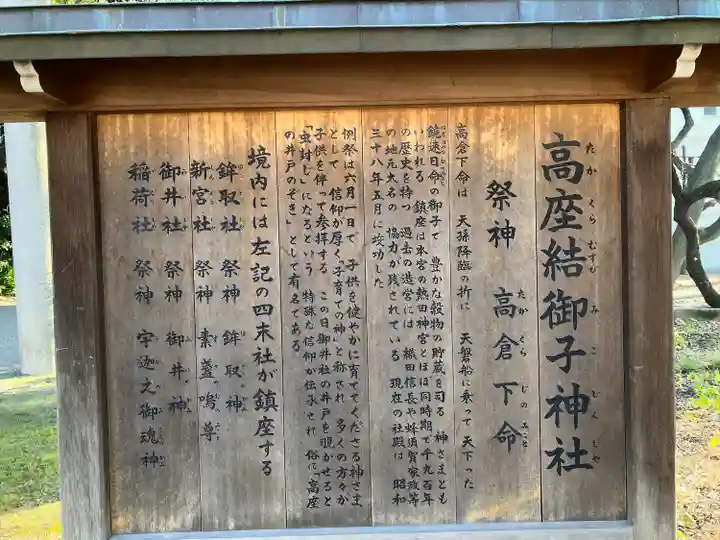 高座結御子神社
たかくらむすびみこじんしゃ
祭神 高倉下命
たかくらじのみこと
高倉下命は 天孫降臨の折に 天磐船に乗って 天下った
饒速日命の御子で 豊かな穀物の貯蔵を司る 神さまとも
いわれる 鎮座は本宮の熱田神宮とほぼ同時期で千九百年
の歴史を持つ 過去の造営には 織田信長や蜂須賀家政等
の地元大名の 協力が残されている 現在の社殿は 昭和
三十八年五月に竣功した
例祭は六月一日で 子供を健やかに育ててくださる神さま
として 信仰が厚く「子育ての神」と称され 多くの方々が
子供を伴って参拝する この日御井社の井戸を覗かせると
「虫封じ」になるという 特殊な信仰が伝承され 俗に「高座
の井戸のぞき」として有名である
境内には左記の四末社が鎮座する
鉾取社 祭神 鉾取神
新宮社 祭神 素盞嗚尊
御井社 祭神 御井神
稲荷社 祭神 宇迦之御魂神